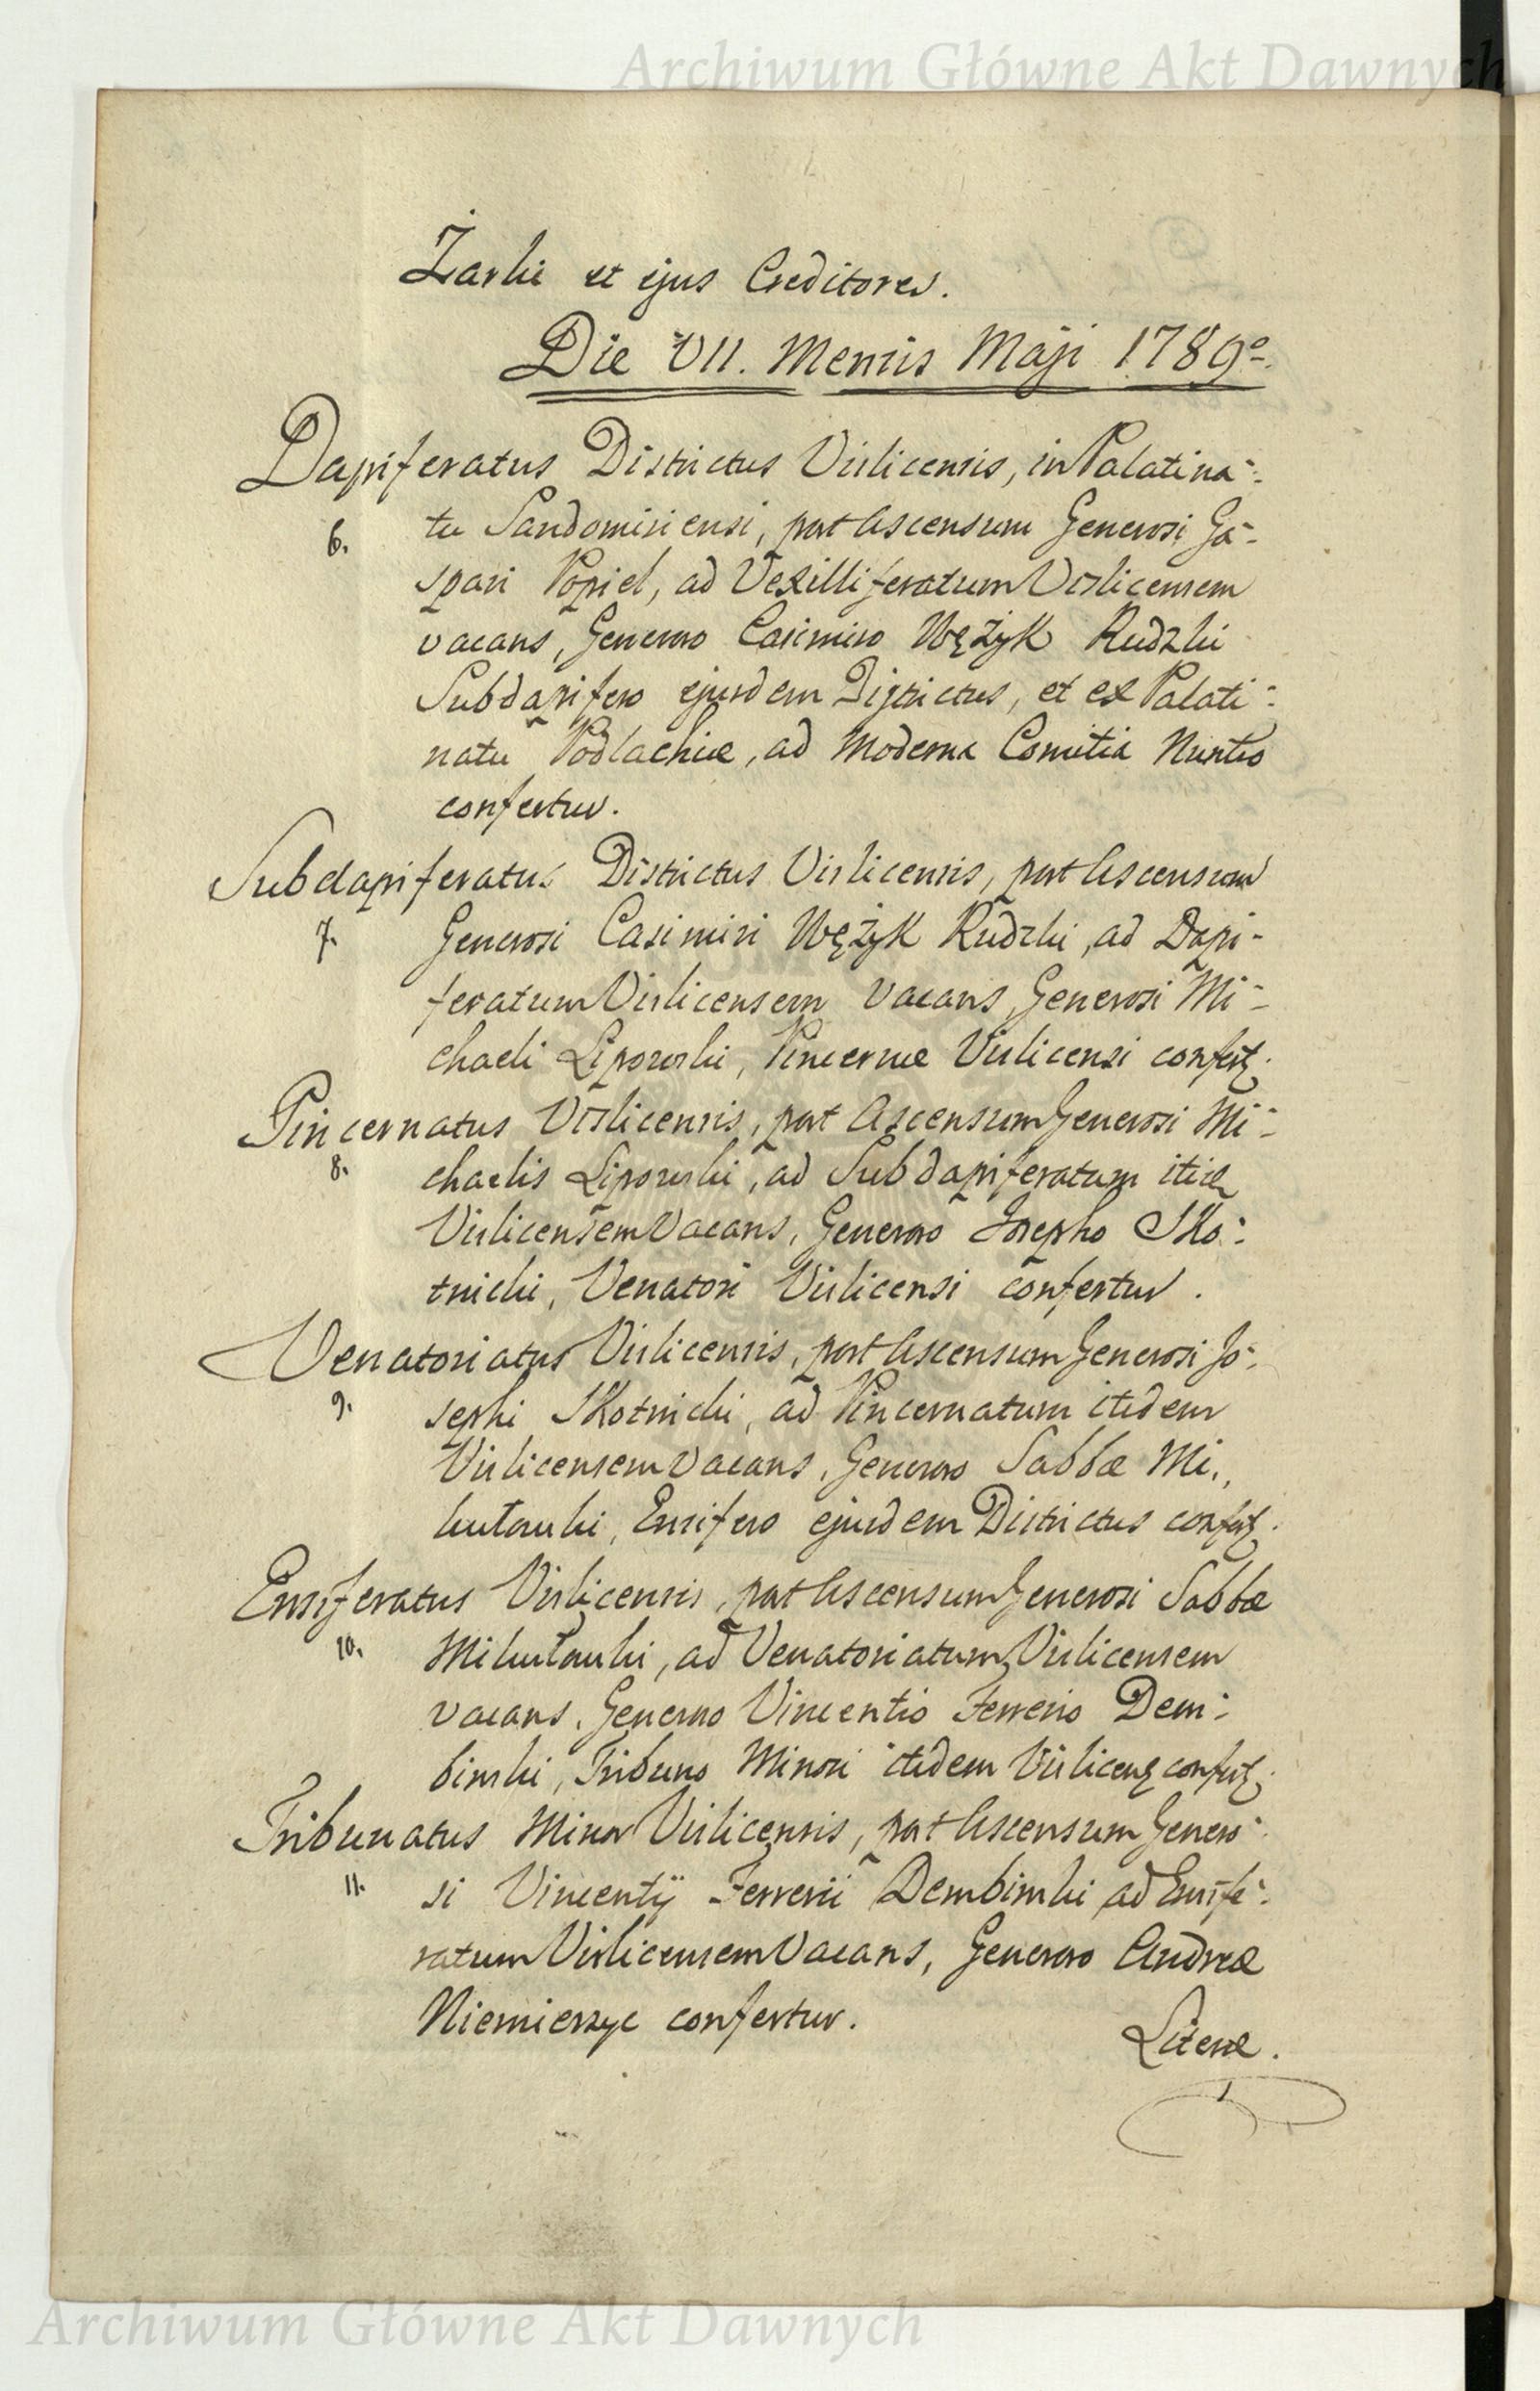 Archiwum Główne Akt Dawnych
Żarki et ejus Creditores.
Die VII. Mensis Maji 1789o
Dapiferatus Districtus Vislicensis, in Palatina=
6. tu Sandomiriensi, post Ascensum Generosi Ga=
spari Popiel, ad Vexilliferatum Vislicensem
vacans, Generoso Casimiro Wężyk Rudzki
Subdapifero ejusdem Districtus, et ex Palati=
natu Podlachiæ, ad moderna Comitia Nuntio
confertur.
Subdapiferatus Districtus Vislicensis, post Ascensum
7. Generosi Casimiri Wężyk Rudzki, ad Dapi=
feratum Vislicensem vacans, Generosi Mi=
chaeli Lipowski, Pincernæ Vislicensi confert.
Pincernatus Vislicensis, post Ascensum Generosi Mi=
8. chaelis Lipowski, ad Subdapiferatum itid
Vislicensem vacans, Generoso Josepho Sko=
tnicki, Venatori Vislicensi confertur.
Venatoriatus Vislicensis, post Ascensum Generosi Jo=
9. sephi Skotnicki, ad Pincernatum itidem
Vislicensem vacans, Generoso Sabbæ Mi,,
kułowski, Ensifero ejusdem Districtus confert.
Ensiferatus Vislicensis, post Ascensum Generosi Sabbæ
10. Mikułowski, ad Venatoriatum Vislicensem
vacans, Generoso Vincentio Ferrerio Dem=
binski, Tribuno Minori itidem Vislicens confert.
Tribunatus Minor Vislicensis, post Ascensum Genero=
11. si Vincentÿ Ferrerii Dembinski ad Ensife=
ratum Vislicensem vacans, Generoso Andreæ
Niemierzyc confertur.
Literæ.
Archiwum Główne Akt Dawnych